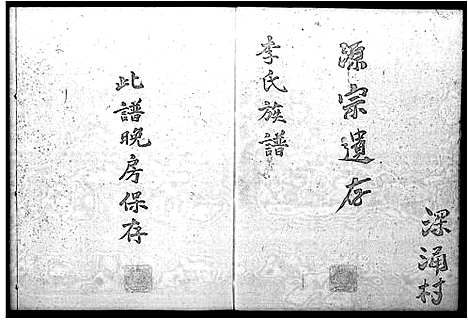 深涌村
源宗遺存
李氏族譜
此譜晚房保存